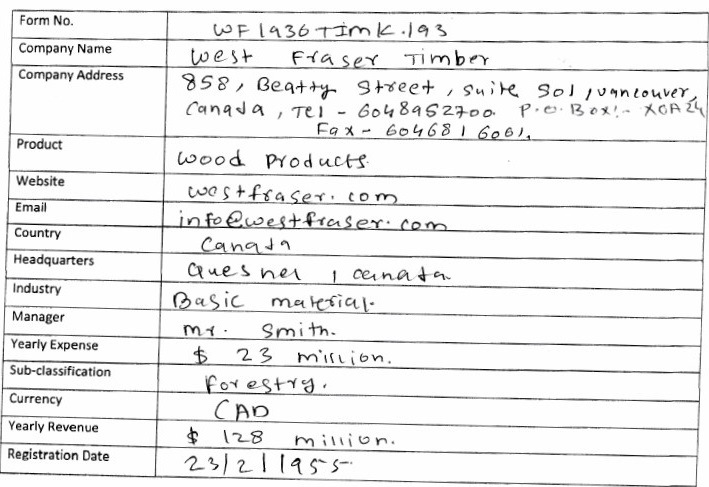 Form No. WF1936TImK.193
Company Name West Fraser Timber
Company Address 858, Beatty Street, suite 501, vancouver,
Canada, Tel - 6048952700. P.O. Box:- XOA24
Fax - 6046816061.
Product wood products.
Website westfraser.com
Email info@westfraser.com
Country Canada
Headquarters Quesnel, canada.
Industry Basic material.
Manager mr. Smith.
Yearly Expense $ 23 million.
Sub-classification Forestry.
Currency CAD
Yearly Revenue $ 128 million.
Registration Date 23/2/1955